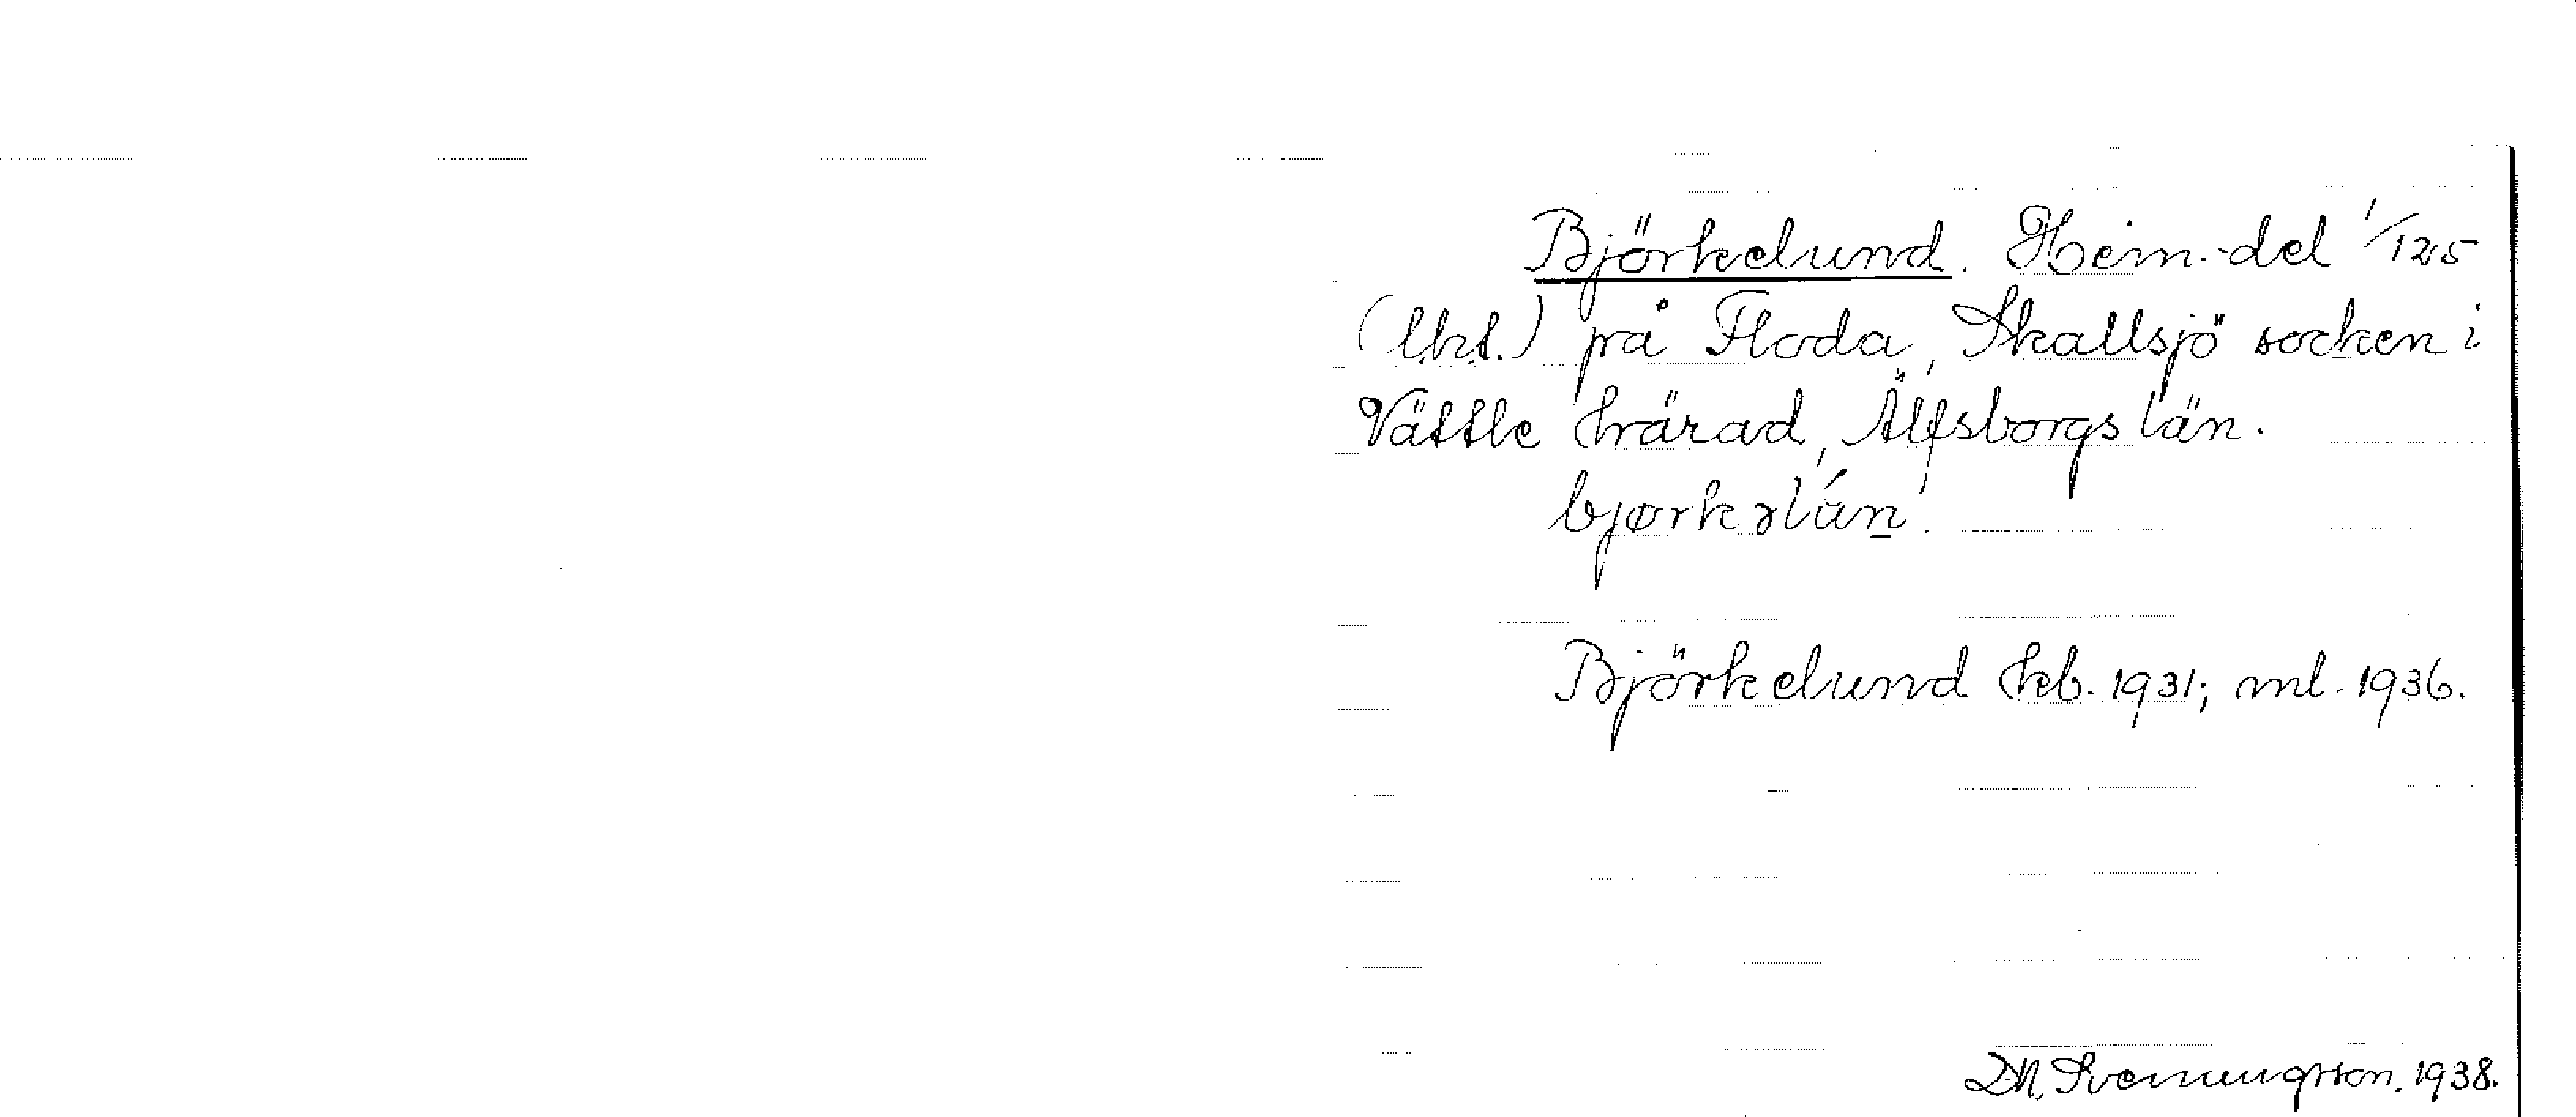 Björkelund. Hem.-del 1/125
(lht.) på Floda, Skallsjö socken i
Vättle härad, Älfsborgs län.
bjørkəlún.
Björkelund hb. 1931; ml. 1936.
D.N. Svenungsson. 1938.